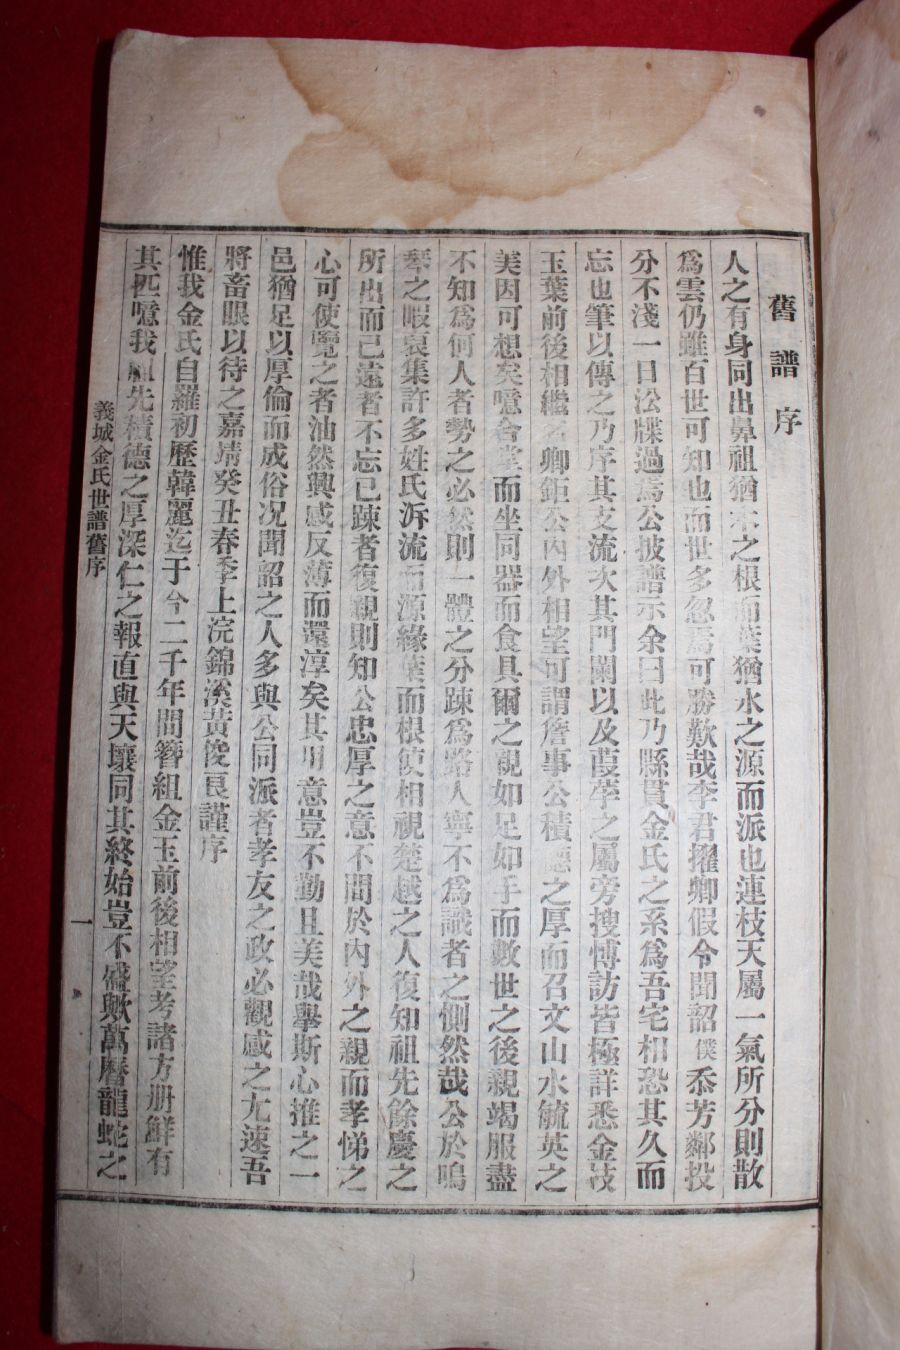 舊譜序
人之有身同出鼻祖猶木之根而葉猶水之源而派也連枝天屬一氣所分則散
爲雲仍雖百世可知也而世多忽焉可勝歎哉李君擢卿假令聞韶僕忝芳鄰投
分不淺一日訟牒過焉公披譜示余曰此乃縣貫金氏之系爲吾宅相恐其久而
忘也筆以傳之乃序其支流次其門闌以及葭莩之屬旁搜博訪皆極詳悉金枝
玉葉前後相繼名卿鉅公內外相望可謂詹事公積德之厚而召文山水毓英之
美因可想矣噫合堂而坐同器而食具爾之親如足如手而數世之後親竭服盡
不知爲何人者勢之必然則一體之分踈爲路人寧不爲識者之惻然哉公於鳴
琴之暇裒集許多姓氏泝流而源緣葉而根使相視楚越之人復知祖先餘慶之
所出而已遠者不忘已踈者復親則知公忠厚之意不間於內外之親而孝悌之
心可使覽之者油然興感反薄而還淳矣其用意豈不勤且美哉擧斯心推之一
邑猶足以厚倫而成俗况聞韶之人多與公同派者孝友之政必觀感之尤速吾
將畜眼以待之嘉靖癸丑春季上浣錦溪黃俊良謹序
惟我金氏自羅初歷韓麗迄于今二千年間簪組金玉前後相望考諸方册鮮有
其匹噫我祖先積德之厚深仁之報直與天壤同其終始豈不盛歟萬曆龍蛇之
義城金氏世譜舊序
一